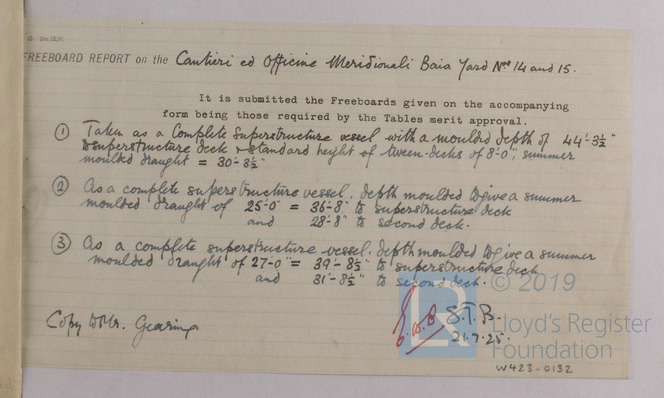 FREEBOARD REPORT on the Cantieri ed Officine Meridionali Baia Yard Nos 14 and 15.
It is submitted the Freeboards given on the accompanying
form being those required by the Tables merit approval.
① Taken as a Complete Superstructure vessel with a moulded depth of 44'-3½"
to superstructure deck & standard height of tween-decks of 8'-0", summer
moulded draught = 30'-8½"
② As a complete superstructure vessel. depth moulded to give a summer
moulded draught of 25'-0" = 36'-8" to superstructure deck
and 28'-8" to second deck.
③ As a complete superstructure vessel. depth moulded to give a summer
moulded draught of 27'-0" = 39'-8½" to superstructure deck
and 31'-8½" to second deck.
Copy to Mr. Gearing.
S.T.B.
21.7.25.
W423-0132
LR © 2019
Lloyd's Register
Foundation